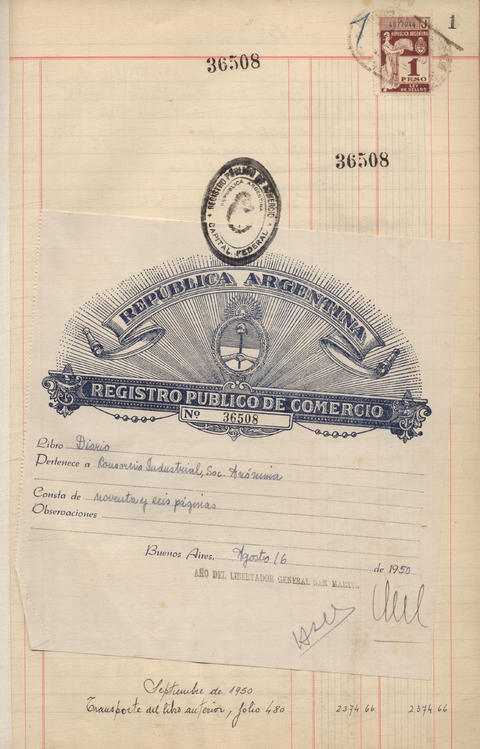 1
36508
REPÚBLICA ARGENTINA
1
PESO
LEY
DE SELLOS
36508
REGISTRO PÚBLICO DE COMERCIO
REPÚBLICA ARGENTINA
CAPITAL FEDERAL
REPÚBLICA ARGENTINA
REGISTRO PUBLICO DE COMERCIO
Nº 36508
Libro Diario
Pertenece a Consorcio Industrial, Soc. Anónima
Consta de noventa y seis páginas
Observaciones
Buenos Aires, Agosto 16 de 1950
AÑO DEL LIBERTADOR GENERAL SAN MARTIN
Septiembre de 1950
Transporte del libro anterior, folio 480 2374 66 2374 66